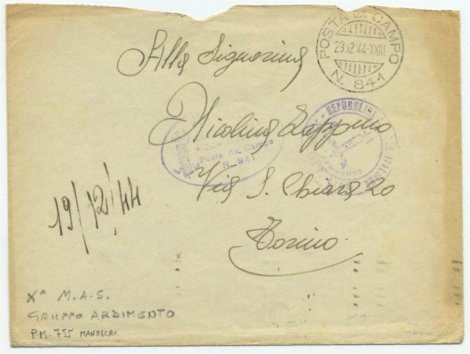 POSTA DA CAMPO
23.12.44-XXIII
N. 841
Alla Signorina
Nicolina Zappino
Via S. Chiara 20
Torino
REPUBBLICA
Posta da Campo
N. 841
19/12/44
Xª M.A.S.
GRUPPO ARDIMENTO
P.M. 755